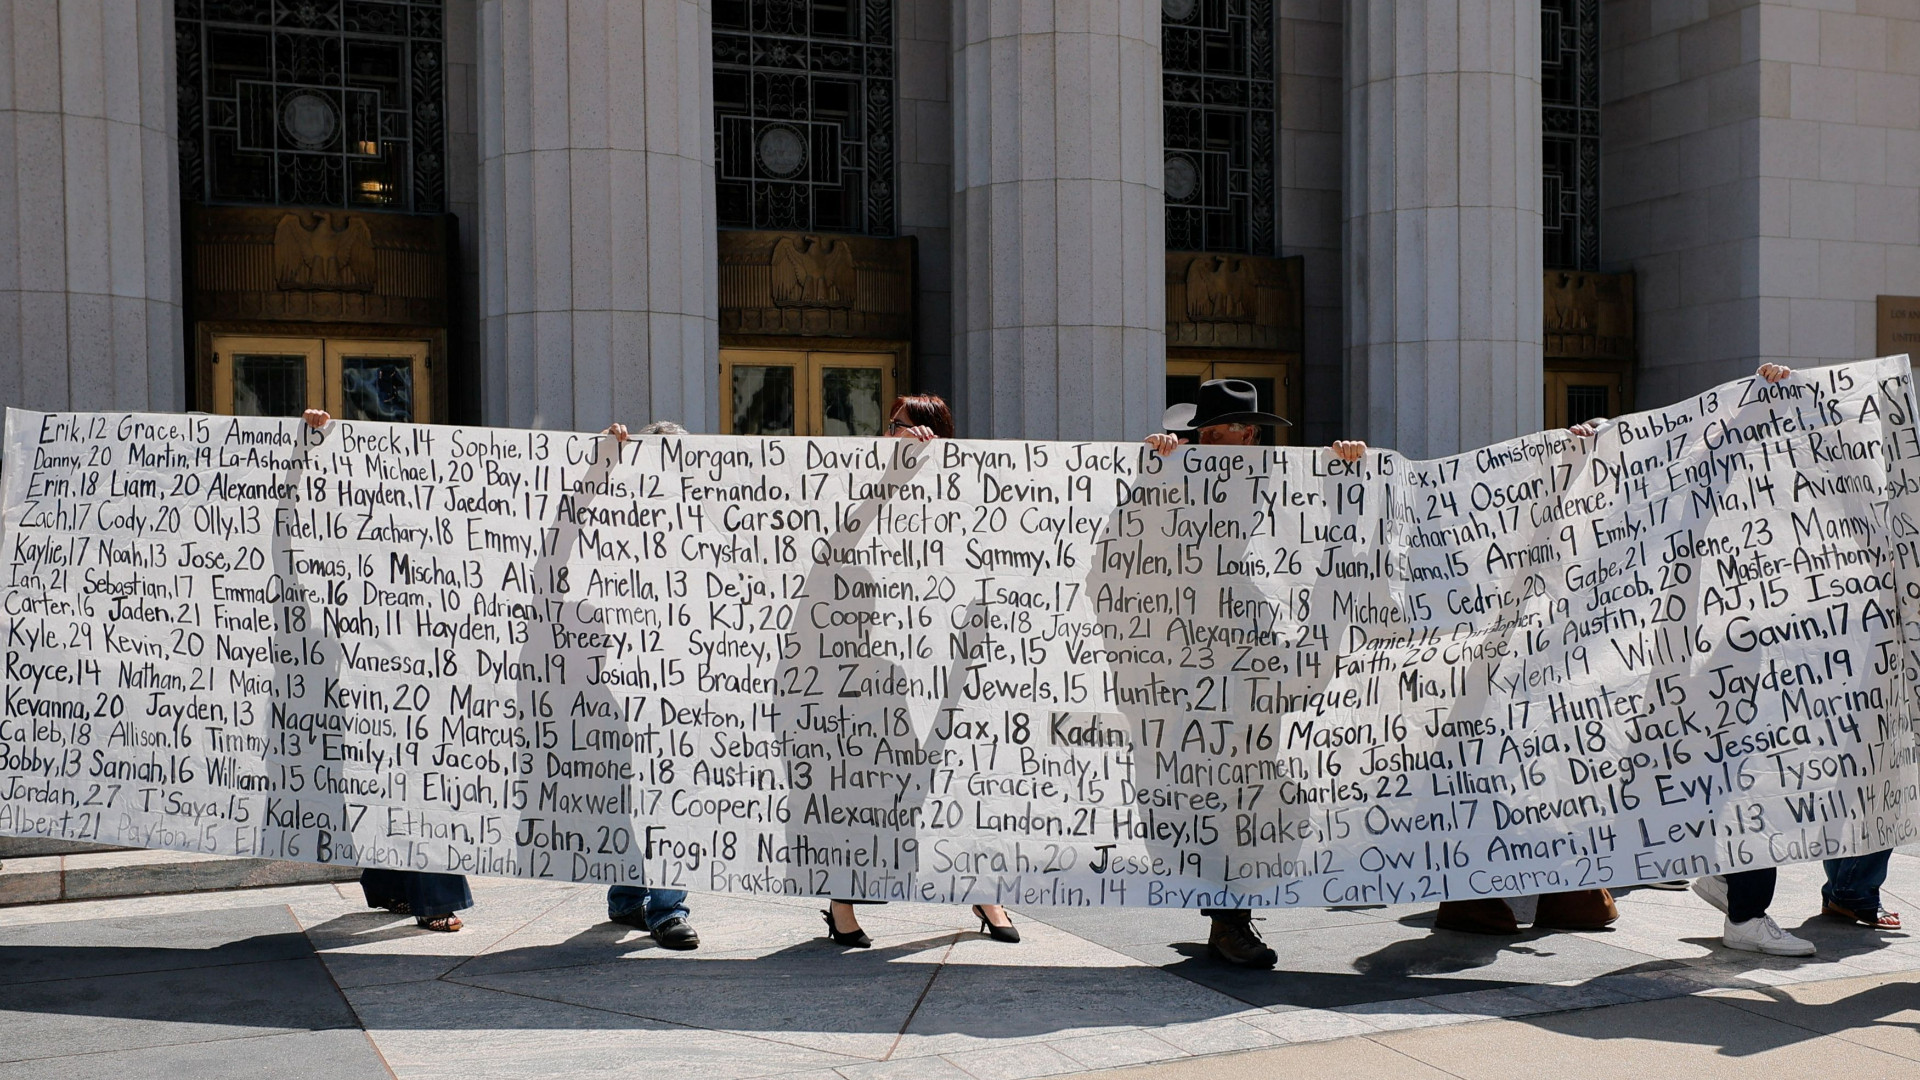 Erik,12 Grace,15 Amanda,15 Breck,14 Sophie,13 CJ,17 Morgan,15 David,16 Bryan,15 Jack,15 Gage,14 Lexi,15 Christopher,17 Bubba,13 Zachary,15
Danny,20 Martin,19 La-Ashanti,14 Michael,20 Bay,11 Landis,12 Fernando,17 Lauren,18 Devin,19 Daniel,16 Tyler,19 24 Oscar,17 Dylan,17 Chantel,18
Erin,18 Liam,20 Alexander,18 Hayden,17 Jaedon,17 Alexander,14 Carson,16 Hector,20 Cayley,15 Jaylen,21 Luca, Zachariah,17 Cadence,14 Englyn,14
Zach,17 Cody,20 Olly,13 Fidel,16 Zachary,18 Emmy,17 Max,18 Crystal,18 Quantrell,19 Sammy,16 Taylen,15 Louis,26 Juan,16 Elana,15 Arriani,9 Emily,17 Mia,14 Avianna,
Kaylie,17 Noah,13 Jose,20 Tomas,16 Mischa,13 Ali,18 Ariella,13 De'ja,12 Damien,20 Isaac,17 Adrien,19 Henry,18 Michael,15 Cedric,20 Gabe,21 Jolene,23 Manny,17
Ian,21 Sebastian,17 EmmaClaire,16 Dream,10 Adrien,17 Carmen,16 KJ,20 Cooper,16 Cole,18 Jayson,21 Alexander,24 Daniel,16 Christopher,19 Jacob,20 Master-Anthony,
Carter,16 Jaden,21 Finale,18 Noah,11 Hayden,13 Breezy,12 Sydney,15 Londen,16 Nate,15 Veronica,23 Zoe,14 Faith,20 Chase,16 Austin,20 AJ,15 Isaac
Kyle,29 Kevin,20 Nayelie,16 Vanessa,18 Dylan,19 Josiah,15 Braden,22 Zaiden,11 Jewels,15 Hunter,21 Tahrique,11 Mia,11 Kylen,19 Will,16 Gavin,17
Royce,14 Nathan,21 Maia,13 Kevin,20 Mars,16 Ava,17 Dexton,14 Justin,18 Jax,18 Kadin,17 AJ,16 Mason,16 James,17 Hunter,15 Jayden,19
Kevanna,20 Jayden,13 Naquavious,16 Marcus,15 Lamont,16 Sebastian,16 Amber,17 Bindy,14 Maricarmen,16 Joshua,17 Asia,18 Jack,20 Marina,
Caleb,18 Allison,16 Timmy,13 Emily,19 Jacob,13 Damone,18 Austin,13 Harry,17 Gracie,15 Desiree,17 Charles,22 Lillian,16 Diego,16 Jessica,14
Bobby,13 Saniah,16 William,15 Chance,19 Elijah,15 Maxwell,17 Cooper,16 Alexander,20 Landon,21 Haley,15 Blake,15 Owen,17 Donevan,16 Evy,16 Tyson,17
Jordan,27 T'Saya,15 Kalea,17 Ethan,15 John,20 Frog,18 Nathaniel,19 Sarah,20 Jesse,19 London,12 Owl,16 Amari,14 Levi,13 Will,14
Albert,21 Payton,15 Eli,16 Brayden,15 Delilah,12 Daniel,12 Braxton,12 Natalie,17 Merlin,14 Bryndyn,15 Carly,21 Cearra,25 Evan,16 Caleb,